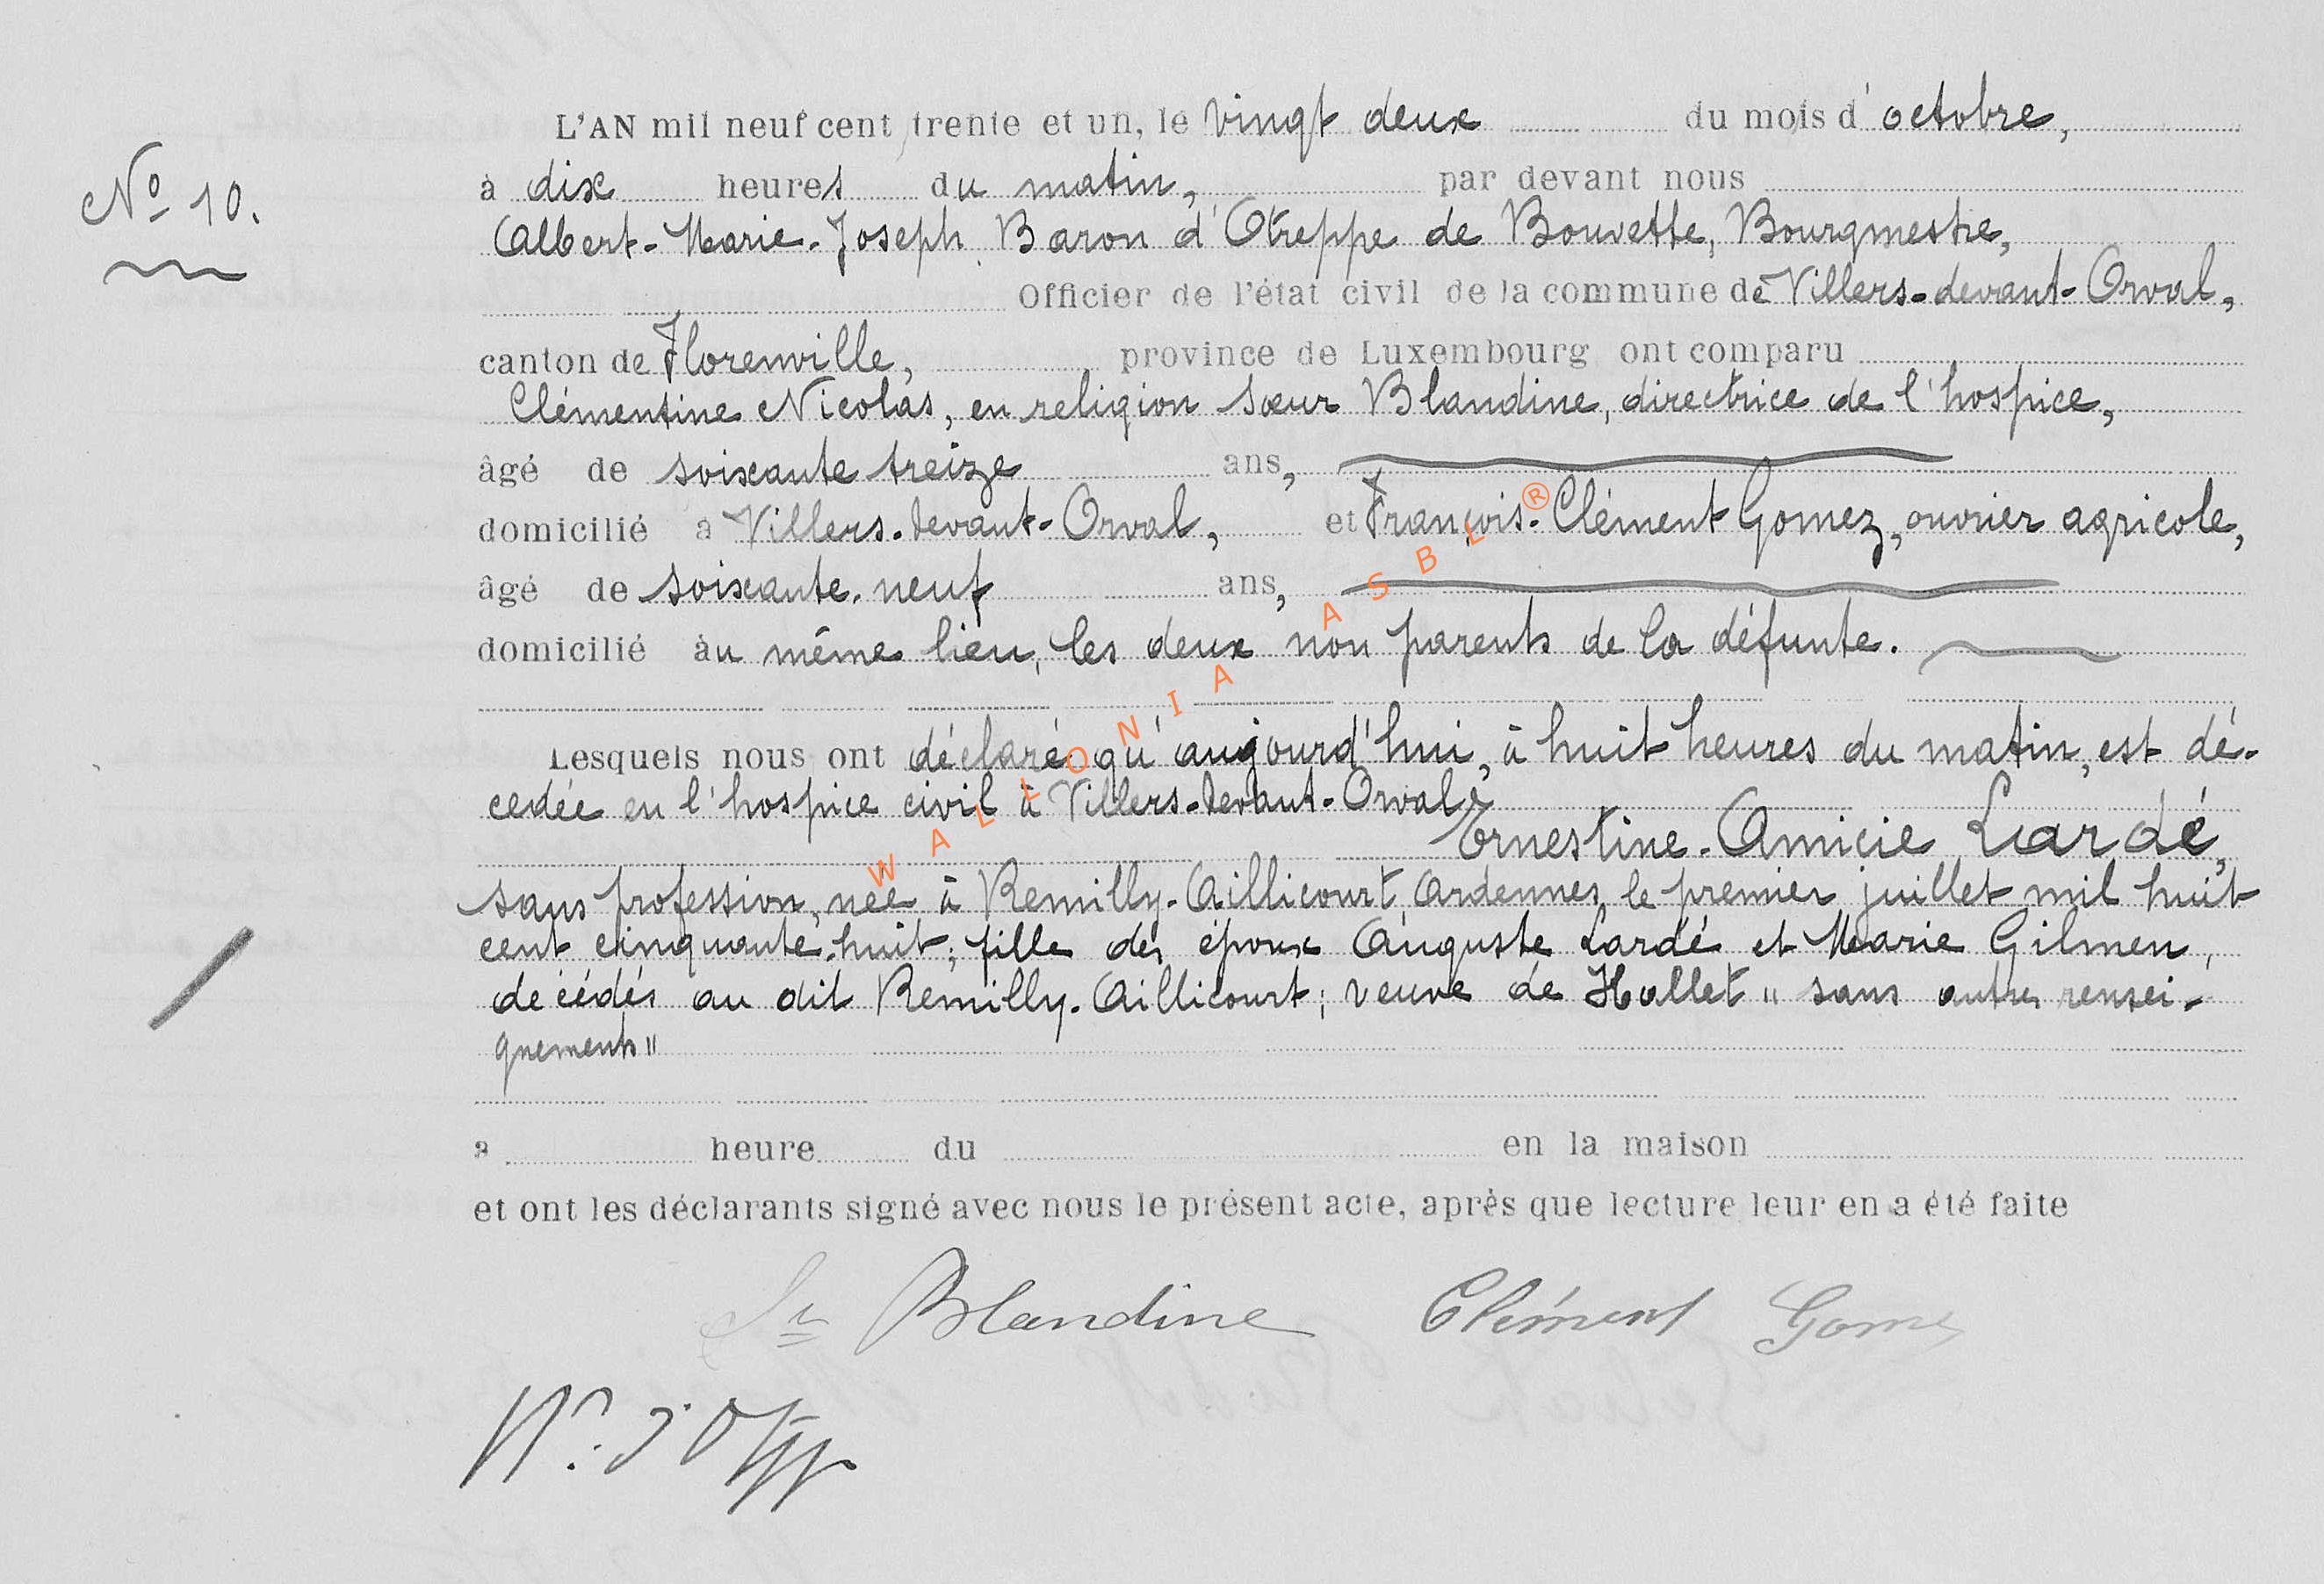 L'AN mil neuf cent trente et un, le vingt deux du mois d'octobre,
No 10.
à dix heures du matin, par devant nous
Albert-Marie-Joseph Baron d'Otreppe de Bouvette, Bourgmestre,
Officier de l'état civil de la commune de Villers-devant-Orval,
canton de Florenville, province de Luxembourg ont comparu
Clémentine Nicolas, en religion sœur Blandine, directrice de l'hospice,
âgé de soixante treize ans,
domicilié à Villers-devant-Orval, et François-Clément Gomez, ouvrier agricole,
âgé de soixante-neuf ans,
domicilié au même lieu, les deux non parents de la défunte.
Lesquels nous ont déclaré qu'aujourd'hui, à huit heures du matin, est dé-
cedée en l'hospice civil à Villers-devant-Orval,
Ernestine-Amicie Lardé,
sans profession, née à Remilly-Aillicourt, Ardennes, le premier juillet mil huit
cent cinquante-huit; fille des époux Auguste Lardé et Marie Gilmen,
décédés au dit Remilly-Aillicourt; veuve de Hallet " sans autres rensei-
gnements "
à heure du en la maison
et ont les déclarants signé avec nous le présent acte, après que lecture leur en a été faite
Sr Blandine Clément Gomez
WALLONIA ASBL ®